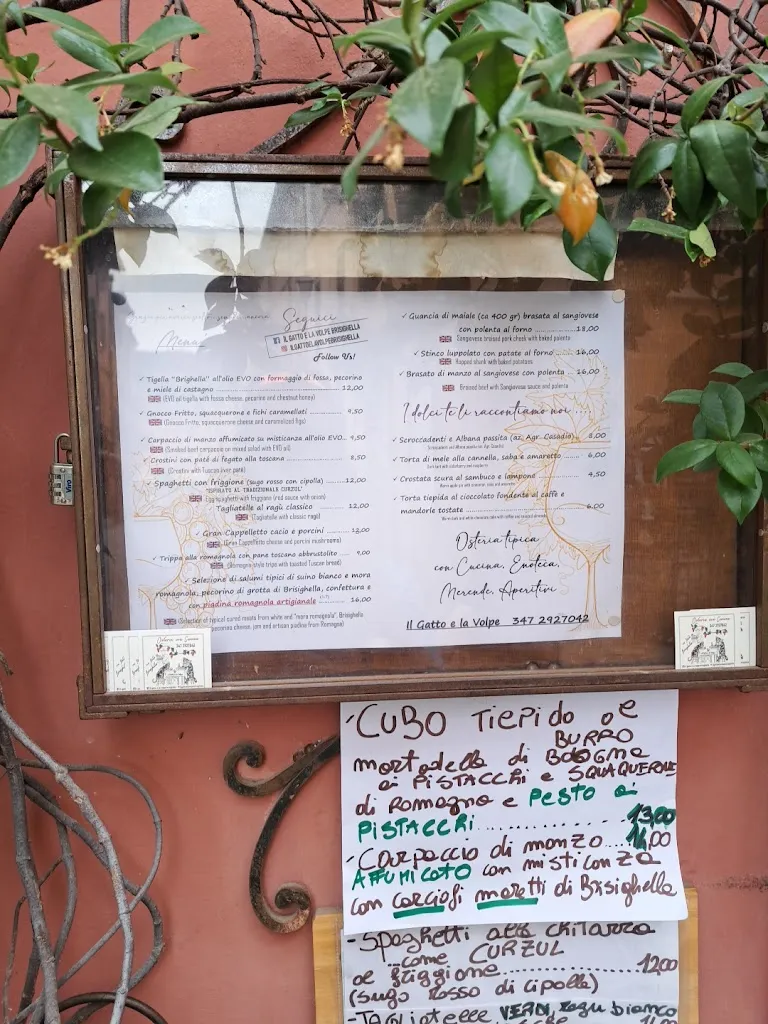 Menu
Seguici
IL GATTO E LA VOLPE BRISIGHELLA
ILGATTOELAVOLPEBRISIGHELLA
Follow Us!
✓ Tigella "Brighella" all'olio EVO con formaggio di fossa, pecorino
e miele di castagno 12,00
(EVO oil tigella with fossa cheese, pecorino and chestnut honey)
✓ Gnocco Fritto, squacquerone e fichi caramellati 9,50
(Gnocco Fritto, squacquerone cheese and caramelized figs)
✓ Carpaccio di manzo affumicato su misticanza all'olio EVO 9,50
(Smoked beef carpaccio on mixed salad with EVO oil)
✓ Crostini con paté di fegato alla toscana 8,50
(Crostini with Tuscan liver paté)
✓ Spaghetti con friggione (sugo rosso con cipolla) 12,00
"ISPIRATO AL TRADIZIONALE CURZUL"
Egg spaghetti with friggione (red sauce with onion)
Tagliatelle al ragù classico 12,00
(Tagliatelle with classic ragù)
✓ Gran Cappelletto cacio e porcini 13,00
(Gran Cappelletto cheese and porcini mushrooms)
✓ Trippa alla romagnola con pane toscano abbrustolito 9,00
(Romagna style tripe with toasted Tuscan bread)
✓ Selezione di salumi tipici di suino bianco e mora
romagnola, pecorino di grotta di Brisighella, confettura e
con piadina romagnola artigianale 16,00
(Selection of typical cured meats from white and "mora romagnola", Brisighella
pecorino cheese, jam and artisan piadina from Romagna)
✓ Guancia di maiale (ca 400 gr) brasata al sangiovese
con polenta al forno 18,00
Sangiovese braised pork cheek with baked polenta
✓ Stinco luppolato con patate al forno 16,00
Hopped shank with baked potatoes
✓ Brasato di manzo al sangiovese con polenta 16,00
Braised beef with Sangiovese sauce and polenta
I dolci te li raccontiamo noi ....
✓ Scroccadenti e Albana passita (az. Agr. Casadio) 8,00
✓ Torta di mele alla cannella, saba e amaretto 6,00
✓ Crostata scura al sambuco e lampone 4,50
✓ Torta tiepida al cioccolato fondente al caffè e
mandorle tostate 6,00
Osteria tipica
con Cucina, Enoteca,
Merende, Aperitivi
Il Gatto e la Volpe 347 2927042
- CUBO Tiepido al
BURRO
mortadella di BOLOGNA
ai PISTACCHI e SQUAQUERONE
di Romagna e PESTO di
PISTACCHI 13,00
- Carpaccio di manzo 14,00
AFFUMICATO con misticanza
con carciofi moretti di Brisighella
- Spaghetti alla chitarra
... come CURZUL
al friggione 12,00
(sugo Rosso di cipolle)
- TAGLIATELLE VERDI, ragù bianco